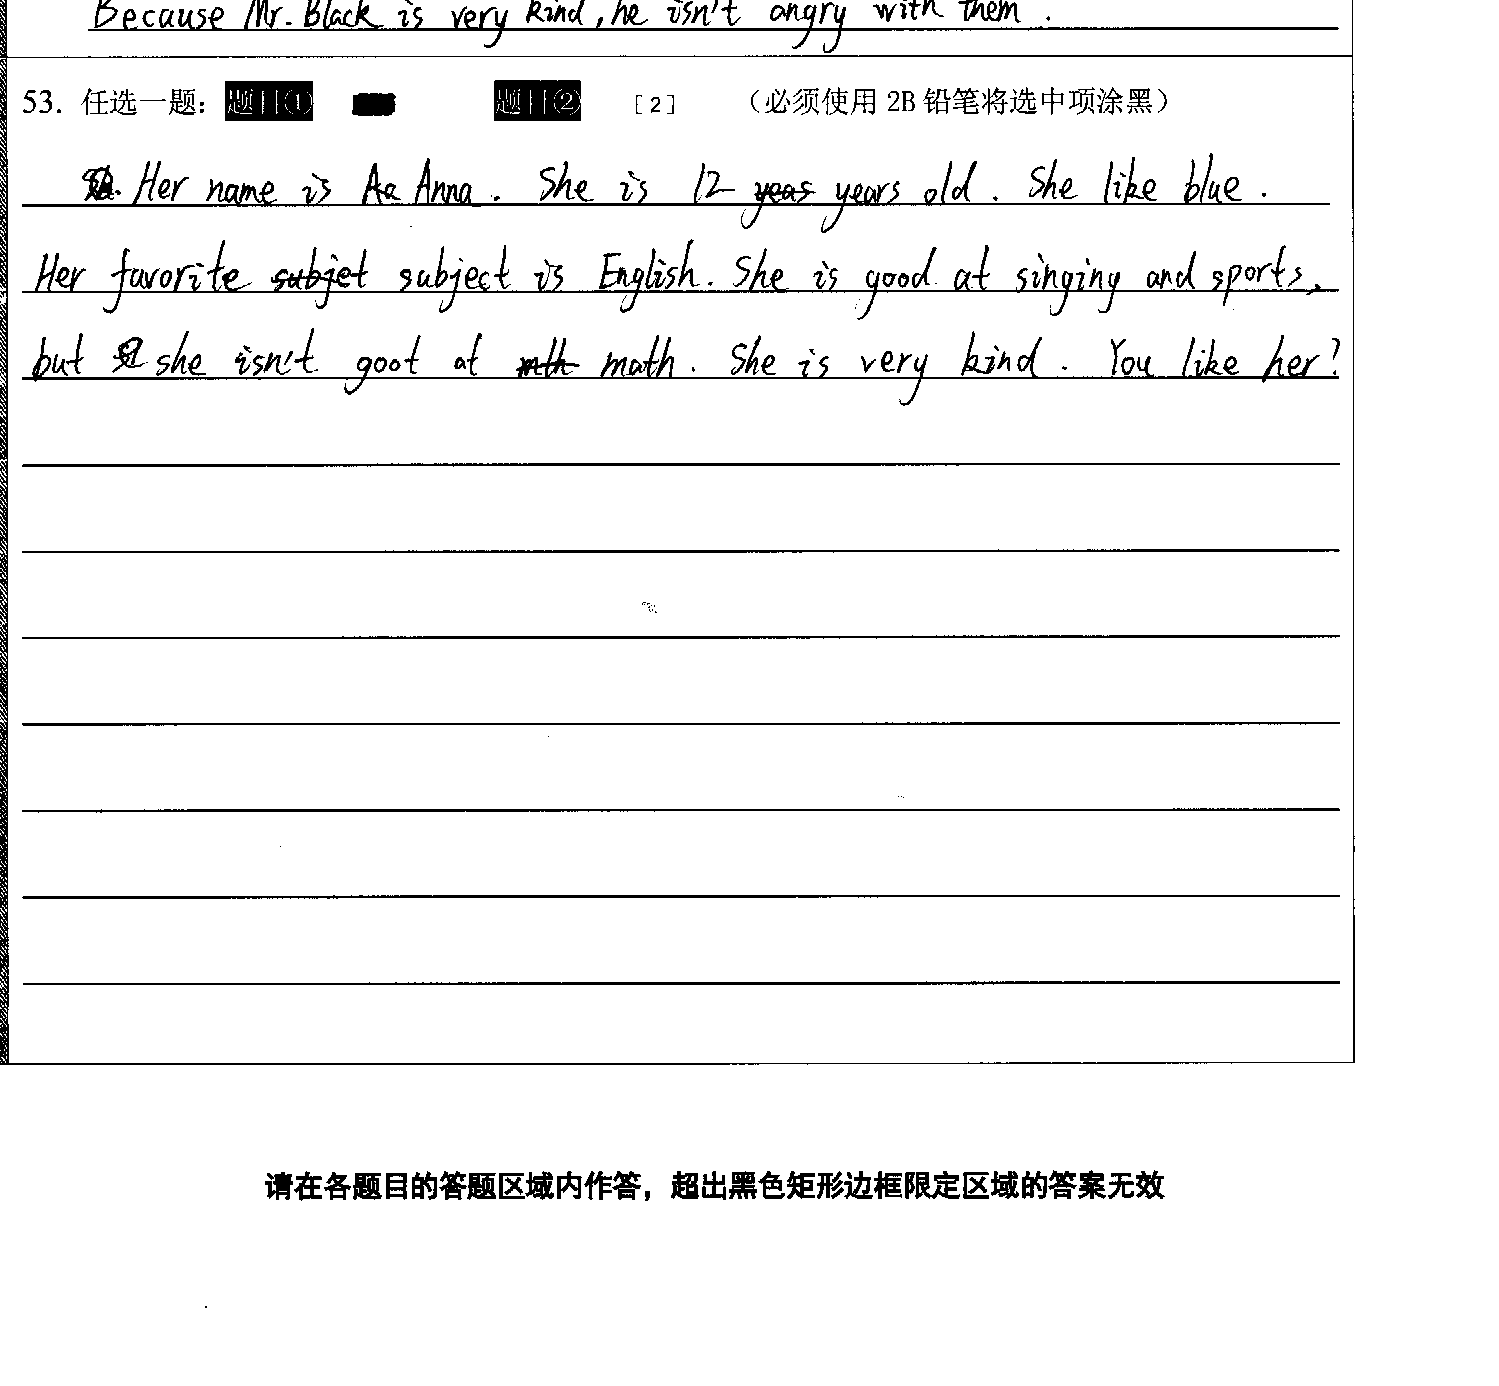 Because Mr. Black is very kind, he isn't angry with them.
53. 任选一题： 题目① 题目② [2] （必须使用 2B 铅笔将选中项涂黑）
Her name is Aa Anna. She is 12 yeas years old. She like blue.
Her favorite subjet subject is English. She is good at singing and sports,
but she isn't goot at mth math. She is very kind. You like her?
请在各题目的答题区域内作答，超出黑色矩形边框限定区域的答案无效